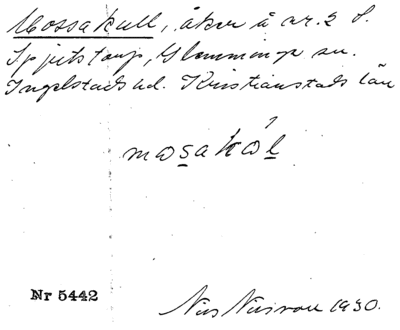 Mossakull, åker å nr. 2 S.
Spjutstorp, Glemminge sn.
Ingelstads hd. Kristianstads län
mosakǻl
Nr 5442
Nils Nilsson 1930.